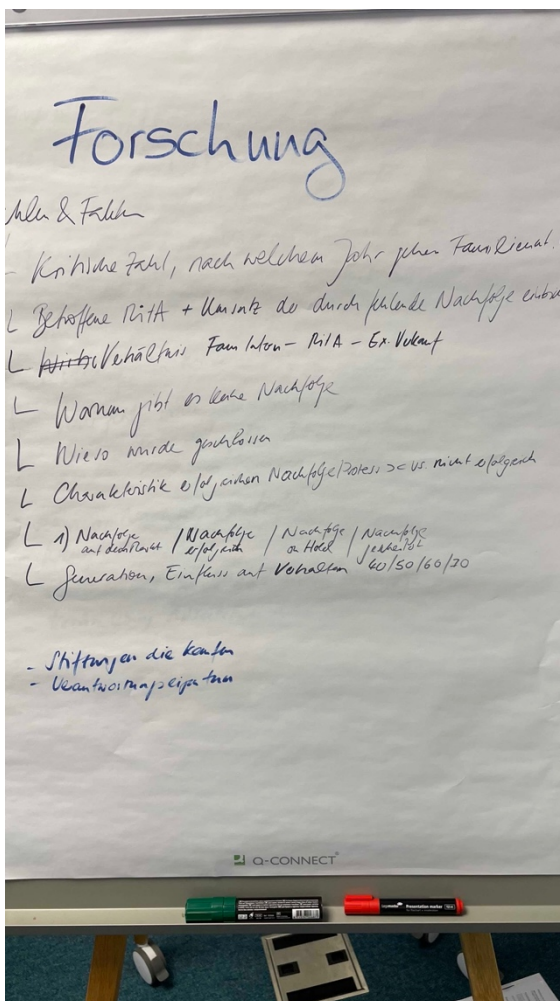 Forschung
& Fakten
- Kritische Zahl, nach welchem Jahr gehen Familienunt.
L Betroffene MitA + Umsatz der durch fehlende Nachfolge
L Verhältnis Fam Intern - MitA - Ex. Verkauf
L Warum gibt es keine Nachfolge
L Wieso wurde geschlossen
L Charakteristik erfolgreichen Nachfolgeprozess >< vs. nicht erfolgreich
L 1) Nachfolge / Nachfolge / Nachfolge / Nachfolge
erfolgreich on Hold gescheitert
L Generation, Einfluss auf Verhalten 40/50/60/70
- Stiftungen die kaufen
- Verantwortungseigentum
Q-CONNECT
Presentation marker